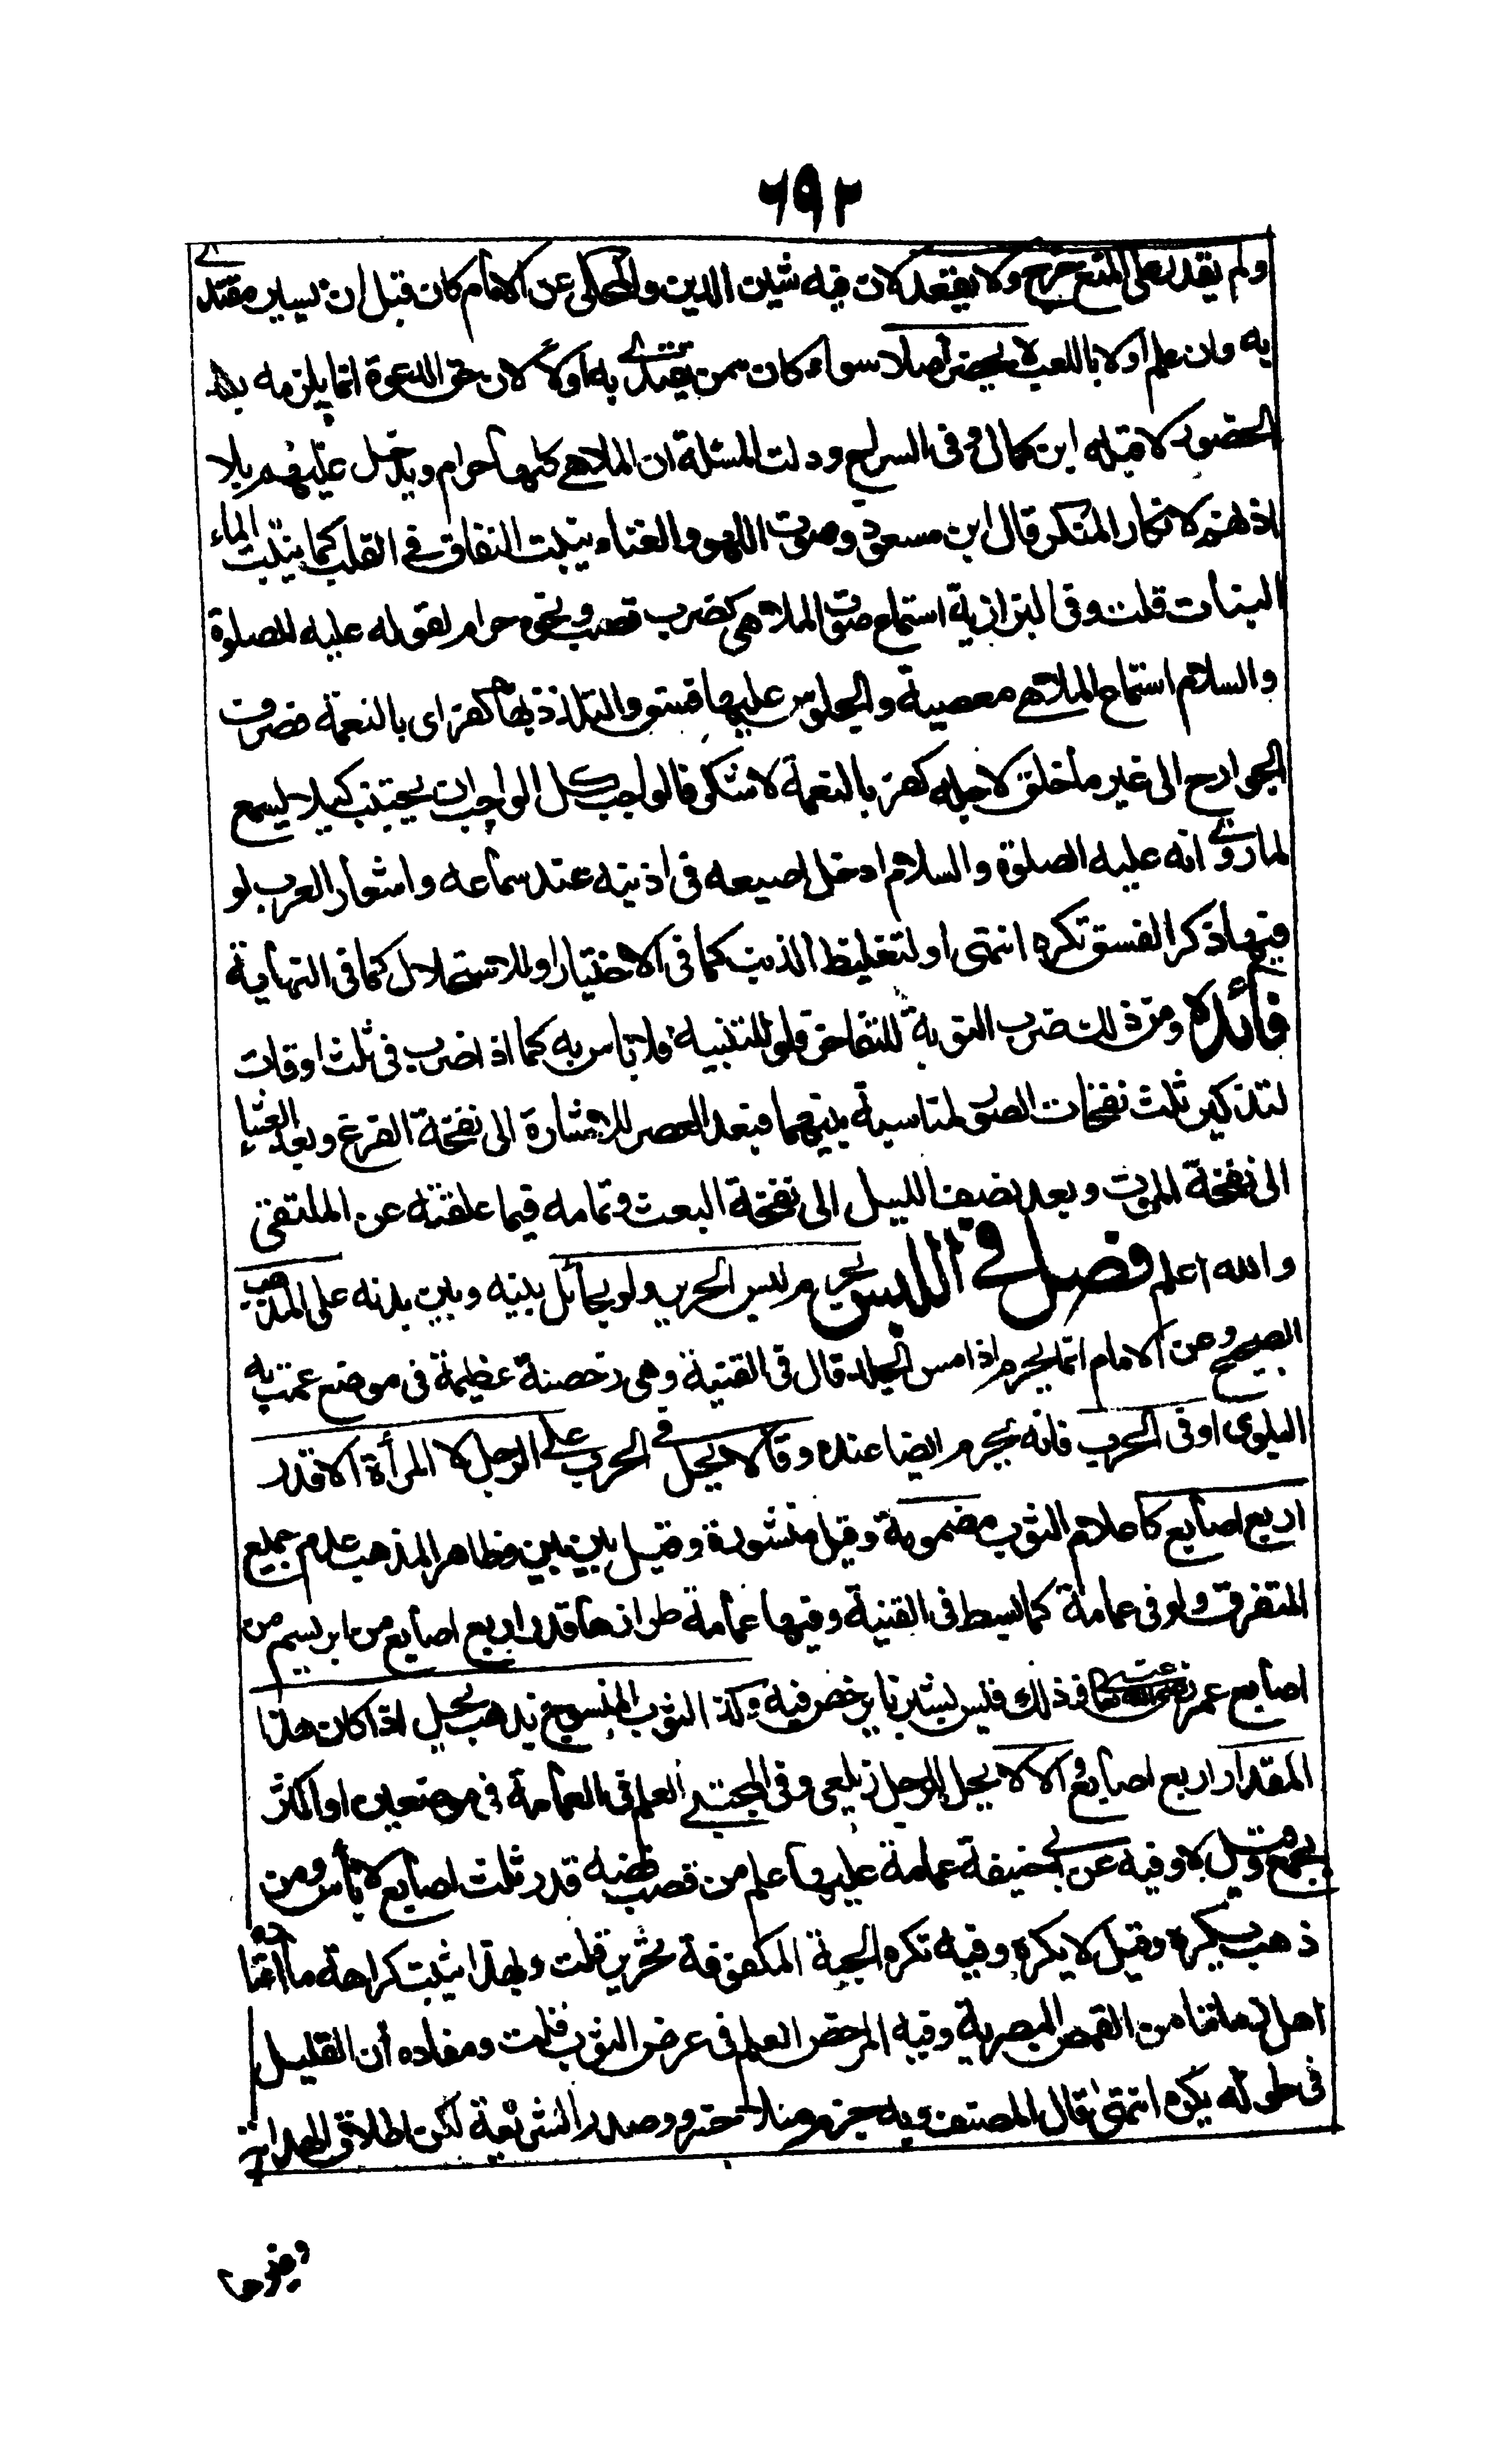 ٦٩٢
ولم يقدر على المنع خرج ولا يقعد لان فيه شين الدين والمحكى عن الامام كان قبل ان يسير مقتدى
به وان علم اولا باللعب لا يحضر اصلا سواء كان ممن يقتدى به اولا لان حق الدعوة انما يلزمه بعد
الحضور لا قبله ابن كمال وفى السراج ودلت المسئلة ان الملاهى كلها حرام ويدخل عليهم بلا
اذنهم لانكار المنكر قال ابن مسعود وصوت اللهو والغناء ينبت النفاق فى القلب كما ينبت الماء
النبات قلت وفى البزازية استماع صوت الملاهى كضرب قصب ونحوه حرام لقوله عليه الصلوة
والسلام استماع الملاهى معصية والجلوس عليها فسق والتلذذ بها كفر اى بالنعمة فصرف
الجوارح الى غير ما خلق لاجله كفر بالنعمة لا شكر فالواجب كل الواجب ان يجتنب كيلا يسمع
لما روى انه عليه الصلوة والسلام ادخل اصبعه فى اذنيه عند سماعه واشعار العرب لو
فيها ذكر الفسق تكره انتهى او لتغليظ الذنب كما فى الاختيار او للاستحلال كما فى النهاية
فائدة ومن ذلك ضرب النوبة للتفاخر فلو للتنبيه فلا باس به كما اذا ضرب فى ثلث اوقات
لتذكير ثلث نفخات الصور لمناسبة بينهما فبعد العصر للاشارة الى نفخة الفزع وبعد العشاء
الى نفخة الموت وبعد نصف الليل الى نفخة البعث وتمامه فيما علقته عن الملتقى
والله اعلم فصل فى اللبس يحرم لبس الحرير ولو بحائل بينه وبين بدنه على المذهب
الصحيح وعن الامام انما يحرم اذا مس الجلد قال فى القنية وهى رخصة عظيمة فى موضع عمت به
البلوى او فى الحرب فانه يحرم ايضا عنده وقالا يحل فى الحرب على الرجل لا المرأة الا قدر
اربع اصابع كاعلام الثوب مضمومة وقيل منشورة وقيل بين بين وظاهر المذهب عدم جميع
المتفرق ولو فى عمامة كما بسط فى القنية وفيها عمامة طرازها قدر اربع اصابع من ابريسم من
اصابع عمر رضى الله عنه وذلك قيس شبرنا يرخص فيه وكذا الثوب المنسوج بذهب يحل اذا كان هذا
المقدار اربع اصابع والا لا يحل للرجل زيلعى وفى المجتبى العلم فى العمامة فى موضعين او اكثر
يجمع وقيل لا وفيه عن ابى حنيفة عمامة عليها علم من قصب فضة قدر ثلث اصابع لا باس ومن
ذهب يكره وقيل لا يكره وفيه تكره الجبة المكفوفة بحرير قلت وبهذا ثبت كراهة ما اعتاده
اهل زماننا من القمص البصرية وفيه المرخص العلم فى عرض الثوب قلت ومفاده أن القليل
فى طوله يكره انتهى قال المصنف وبه جزم منلا خسرو وصدر الشريعة لكن اطلاق الهداية
وغيرها